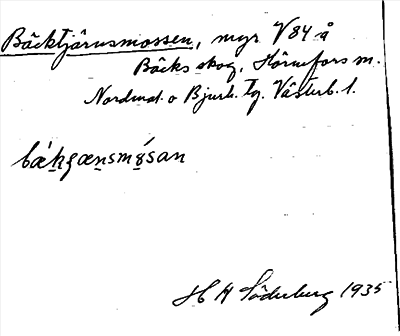 Bäcktjärnsmossen, myr V 84 å
Bäcks skog, Hörnefors m.
Nordmal. o Bjurh. tg. Västerb. l.
H H Söderberg 1935